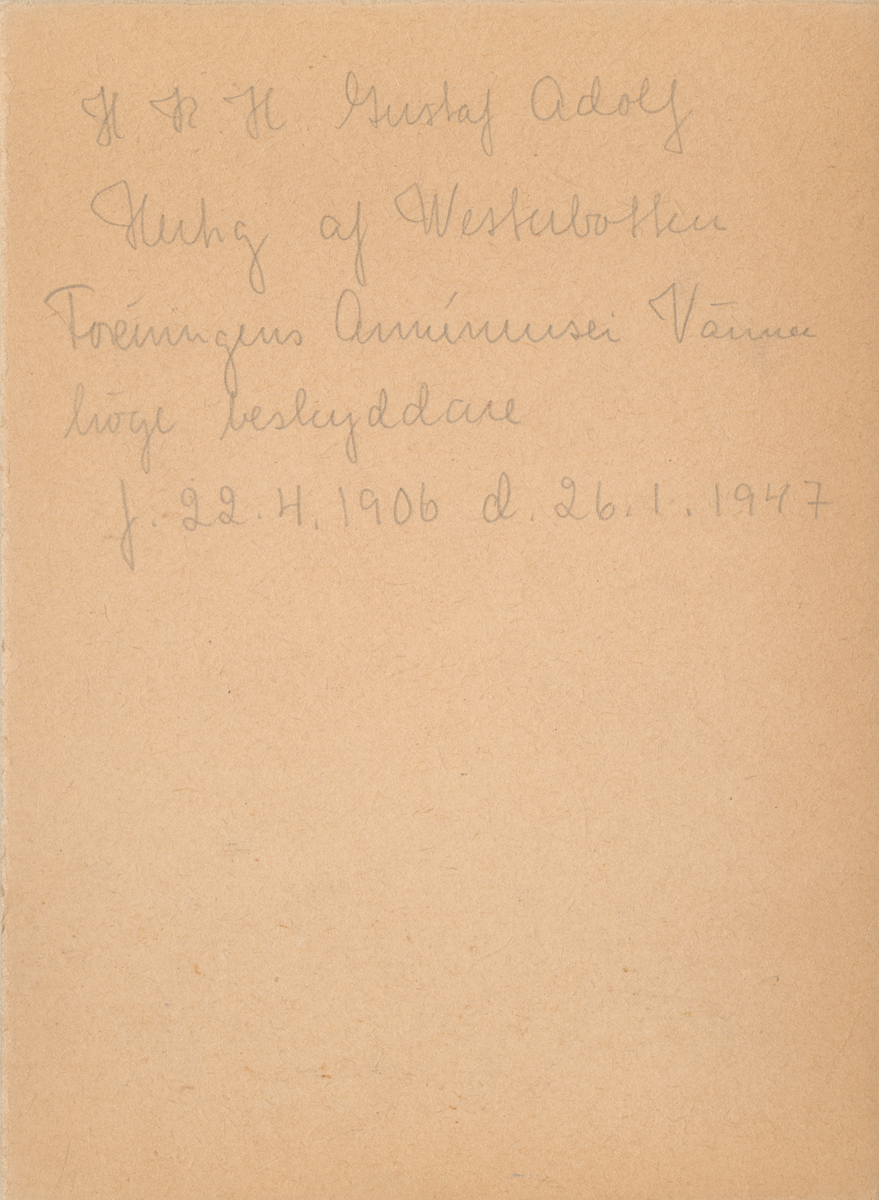 H K H Gustaf Adolf
Hertig af Westerbotten
Föreningens Armémusei Vänner
höge beskyddare
f. 22.4.1906 d. 26.1.1947